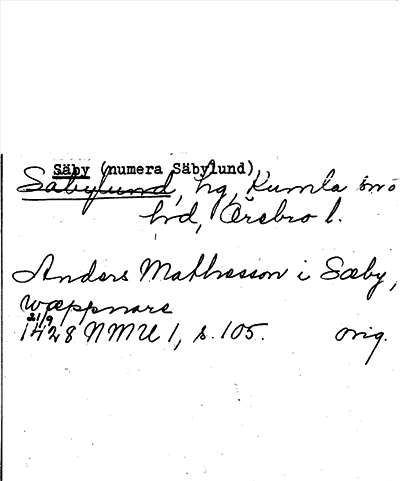 Säby (numera Säbylund)
Säbylund, hg, Kumla sn o
hd, Örebro l.
Anders Mathesson i Sæby,
wæppnare
21/9
1428 NMU 1, s. 105. orig.